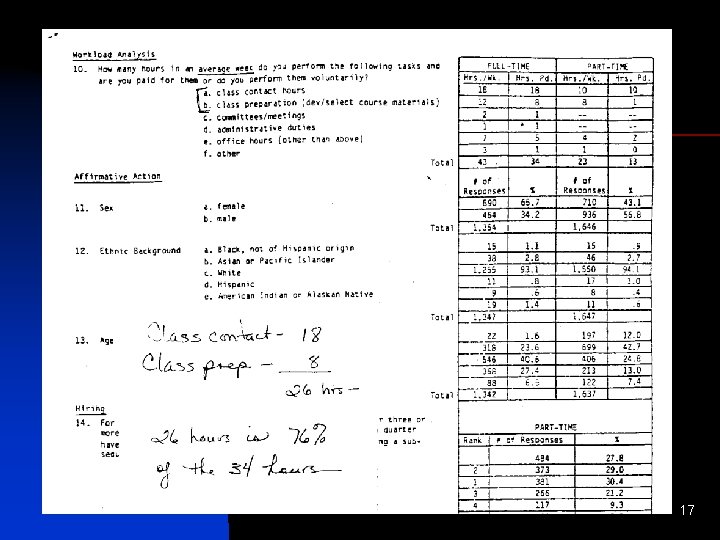 Workload Analysis
10. How many hours in an average week do you perform the following tasks and
are you paid for them or do you perform them voluntarily?
a. class contact hours
b. class preparation (dev/select course materials)
c. committees/meetings
d. administrative duties
e. office hours (other than above)
f. other
Total
FULL-TIME PART-TIME
Hrs./Wk. Hrs. Pd. Hrs./Wk. Hrs. Pd.
18 18 10 10
12 8 8 1
2 1 -- --
1 1 -- --
7 5 4 2
3 1 1 0
43 34 23 13
Affirmative Action
# of Responses % # of Responses %
11. Sex
a. female 690 710 43.1
b. male 34.2 936 56.8
Total 1,646
12. Ethnic Background
a. Black, not of Hispanic origin 15 1.1 15 .9
b. Asian or Pacific Islander 38 2.8 46 2.7
c. White 1,255 93.1 1,550 94.1
d. Hispanic 11 .8 17 1.0
e. American Indian or Alaskan Native 9 .6 8 .4
19 1.4 11 .6
Total 1,347 1,647
13. Age
22 1.6 197 12.0
318 23.6 699 42.7
546 40.6 406 24.8
368 27.4 213 13.0
88 122 7.4
Total 1,347 1,637
Class contact - 18
Class prep - 8
26 hrs -
Hiring
14. For three or
more quarter
have ng a sub-
26 hours is 76%
of the 34 hours
PART-TIME
Rank # of Responses %
27.8
2 373 29.0
1 391 30.4
3 21.2
4 117 9.3
17